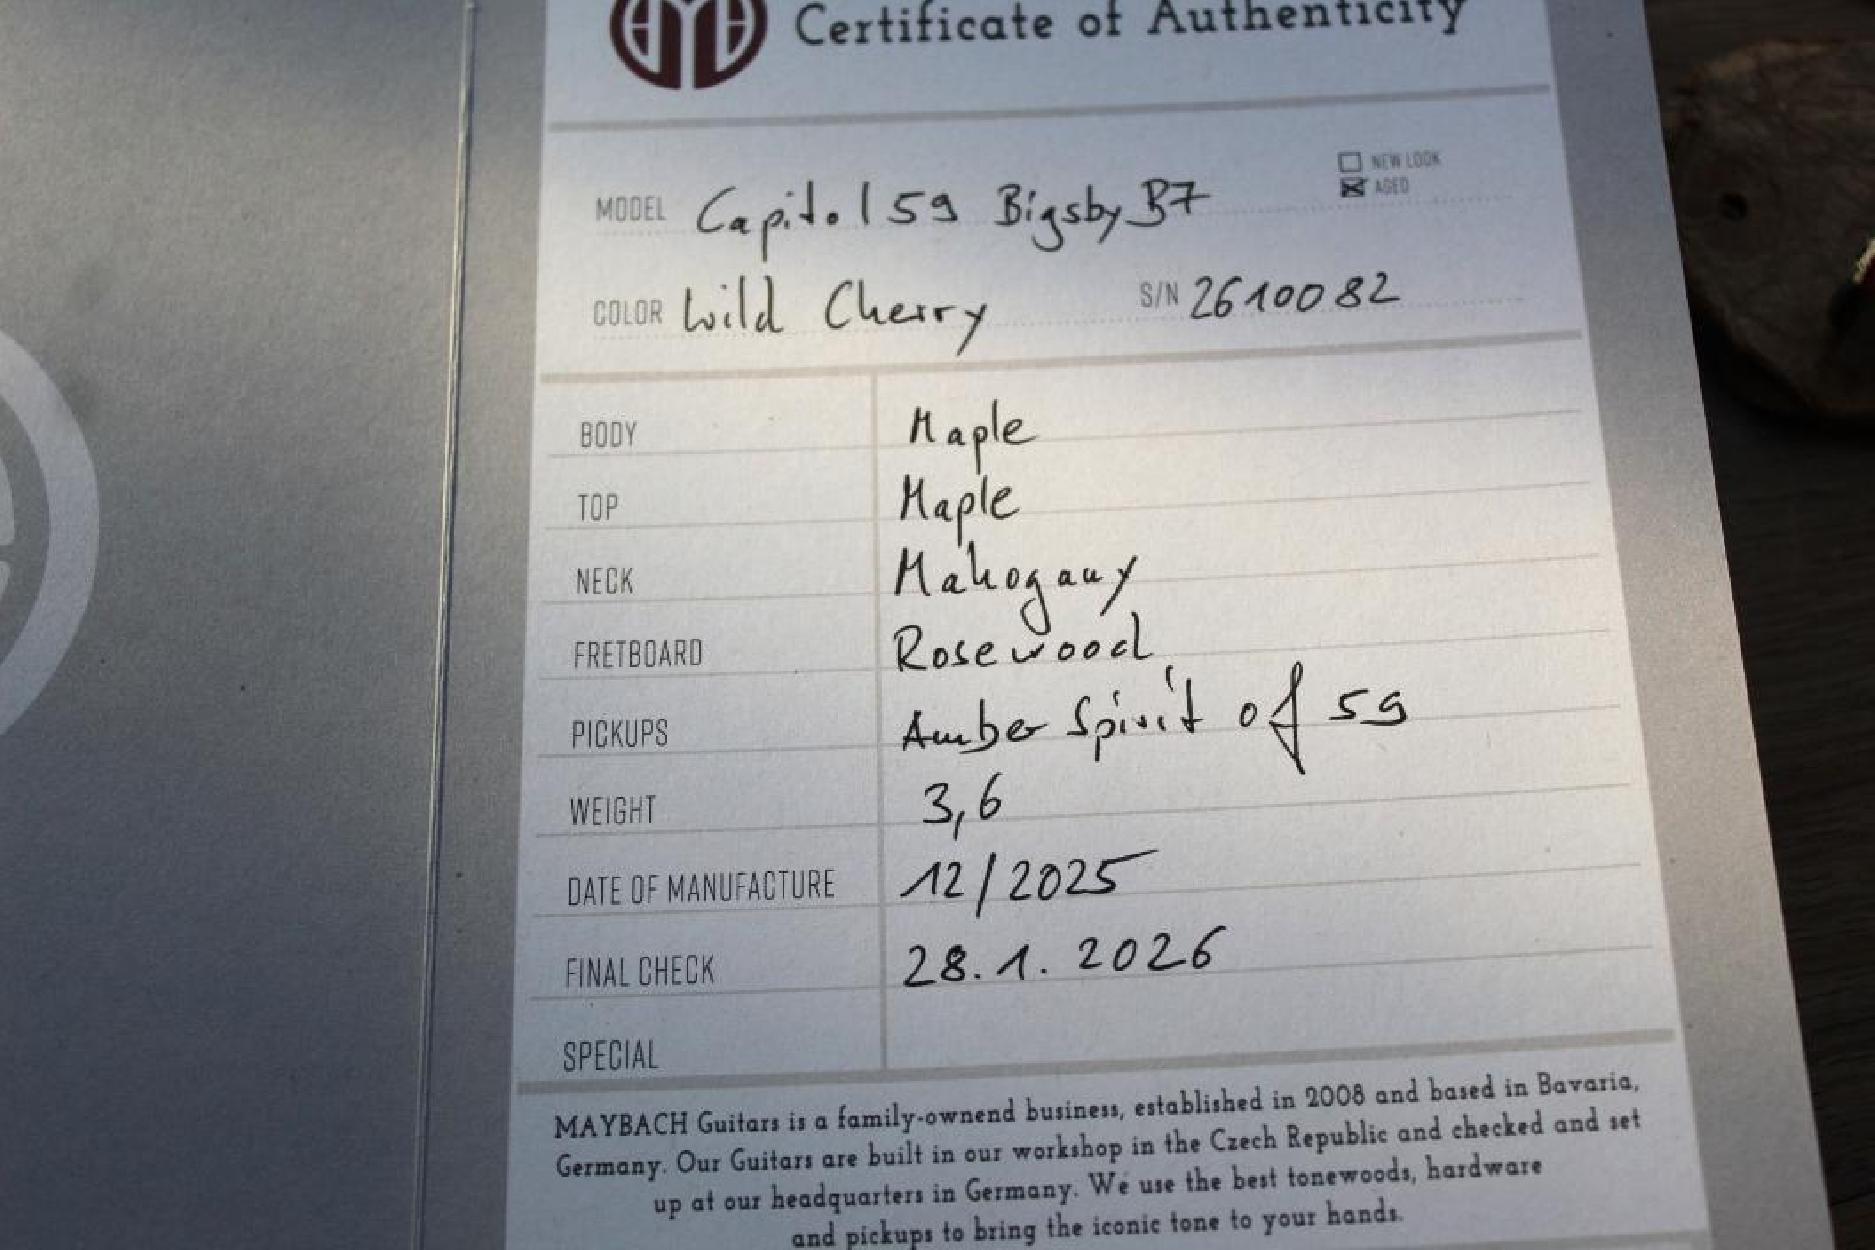 Certificate of Authenticity
NEW LOOK
MODEL Capitol 59 Bigsby B7
AGED
COLOR Wild Cherry S/N 2610082
BODY Maple
TOP Maple
NECK Mahogany
FRETBOARD Rosewood
PICKUPS Amber Spirit of 59
WEIGHT 3,6
DATE OF MANUFACTURE 12/2025
FINAL CHECK 28.1.2026
SPECIAL
MAYBACH Guitars is a family-ownend business, established in 2008 and based in Bavaria,
Germany. Our Guitars are built in our workshop in the Czech Republic and checked and set
up at our headquarters in Germany. We use the best tonewoods, hardware
and pickups to bring the iconic tone to your hands.